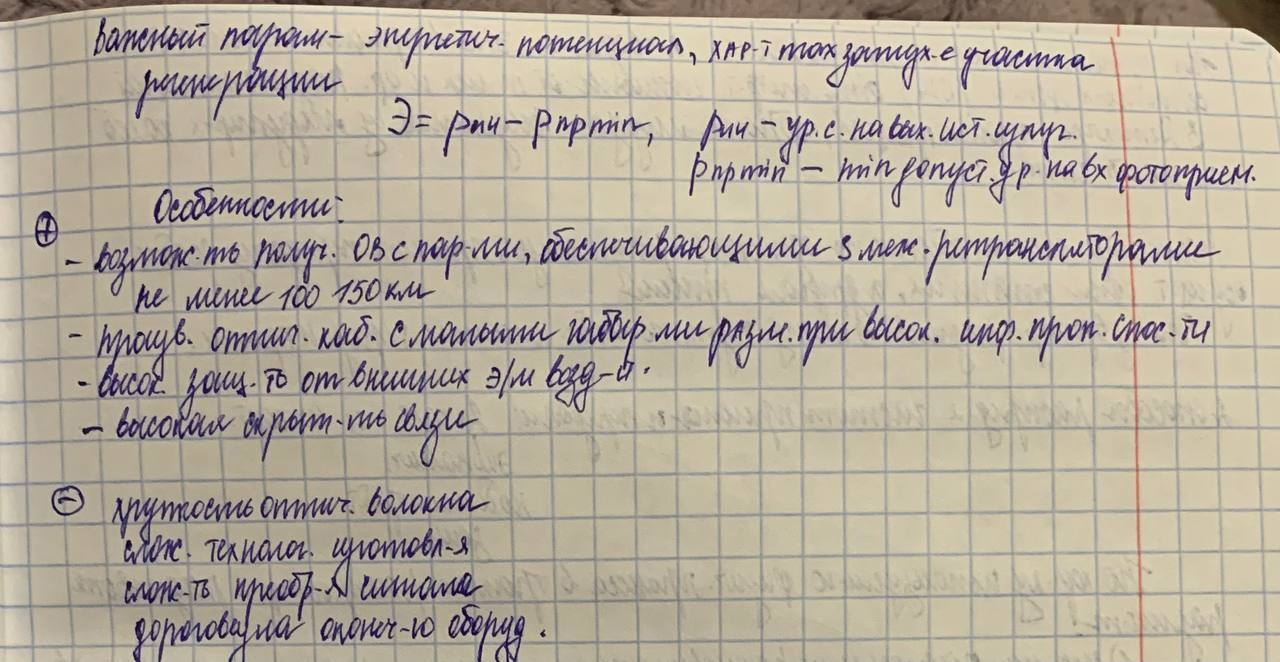 Важный парам– энергетич. потенциал, хар-т max затух-е участка
регенерации
Э = pпи – pпр min, pпи – ур. с. на вых. ист. излуч.
pпр min – min допуст. ур. на вх фотоприем.
Особенности:
⊕
- возмож-ть получ. ОВ с пар-ми, обеспечивающими S меж. ретрансляторами
не менее 100 150 км
- произв. оптич. каб. с малыми габар-ми разм. при высок. инф. проп. спос-ти
- высок. защ-ть от внешних э/м возд-й.
- высокая скрыт-ть связи
⊖ хрупкость оптич. волокна
слож. технолог. изготовл-я
слож-ть преобр-я сигнала
дороговизна оконеч-го оборуд.